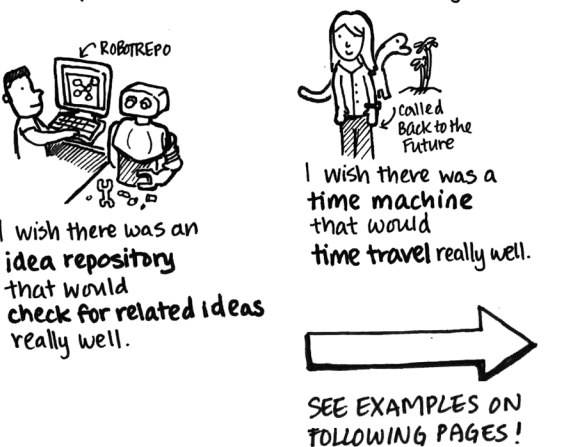 ROBOTREPO
I wish there was an
idea repository
that would
check for related ideas
really well.
Called
Back to the
Future
I wish there was a
time machine
that would
time travel really well.
SEE EXAMPLES ON
FOLLOWING PAGES!